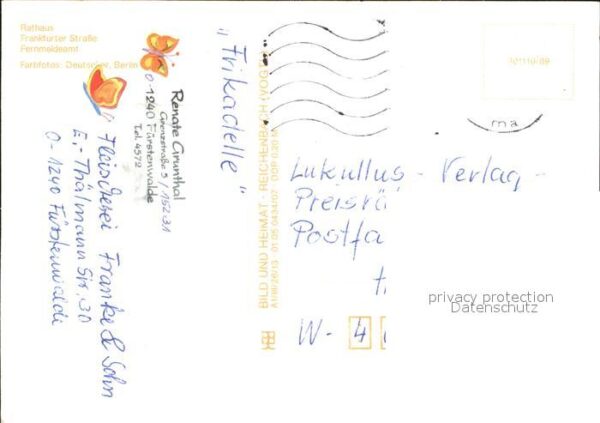 Rathaus
Frankfurter Straße
Fernmeldeamt
Farbfotos: Deutscher, Berlin
Renate Grunthal
Grenzstraße 5 / 152-31
O-1240 Fürstenwalde
Tel. 4572
„Frikadelle"
Fleischerei Franke & Sohn
E.-Thälmann Str. 30
O-1240 Fürstenwalde
BILD UND HEIMAT · REICHENBACH (VOGTL)
Lukullus - Verlag -
Preisrä
Postfa
W- 4
privacy protection
Datenschutz